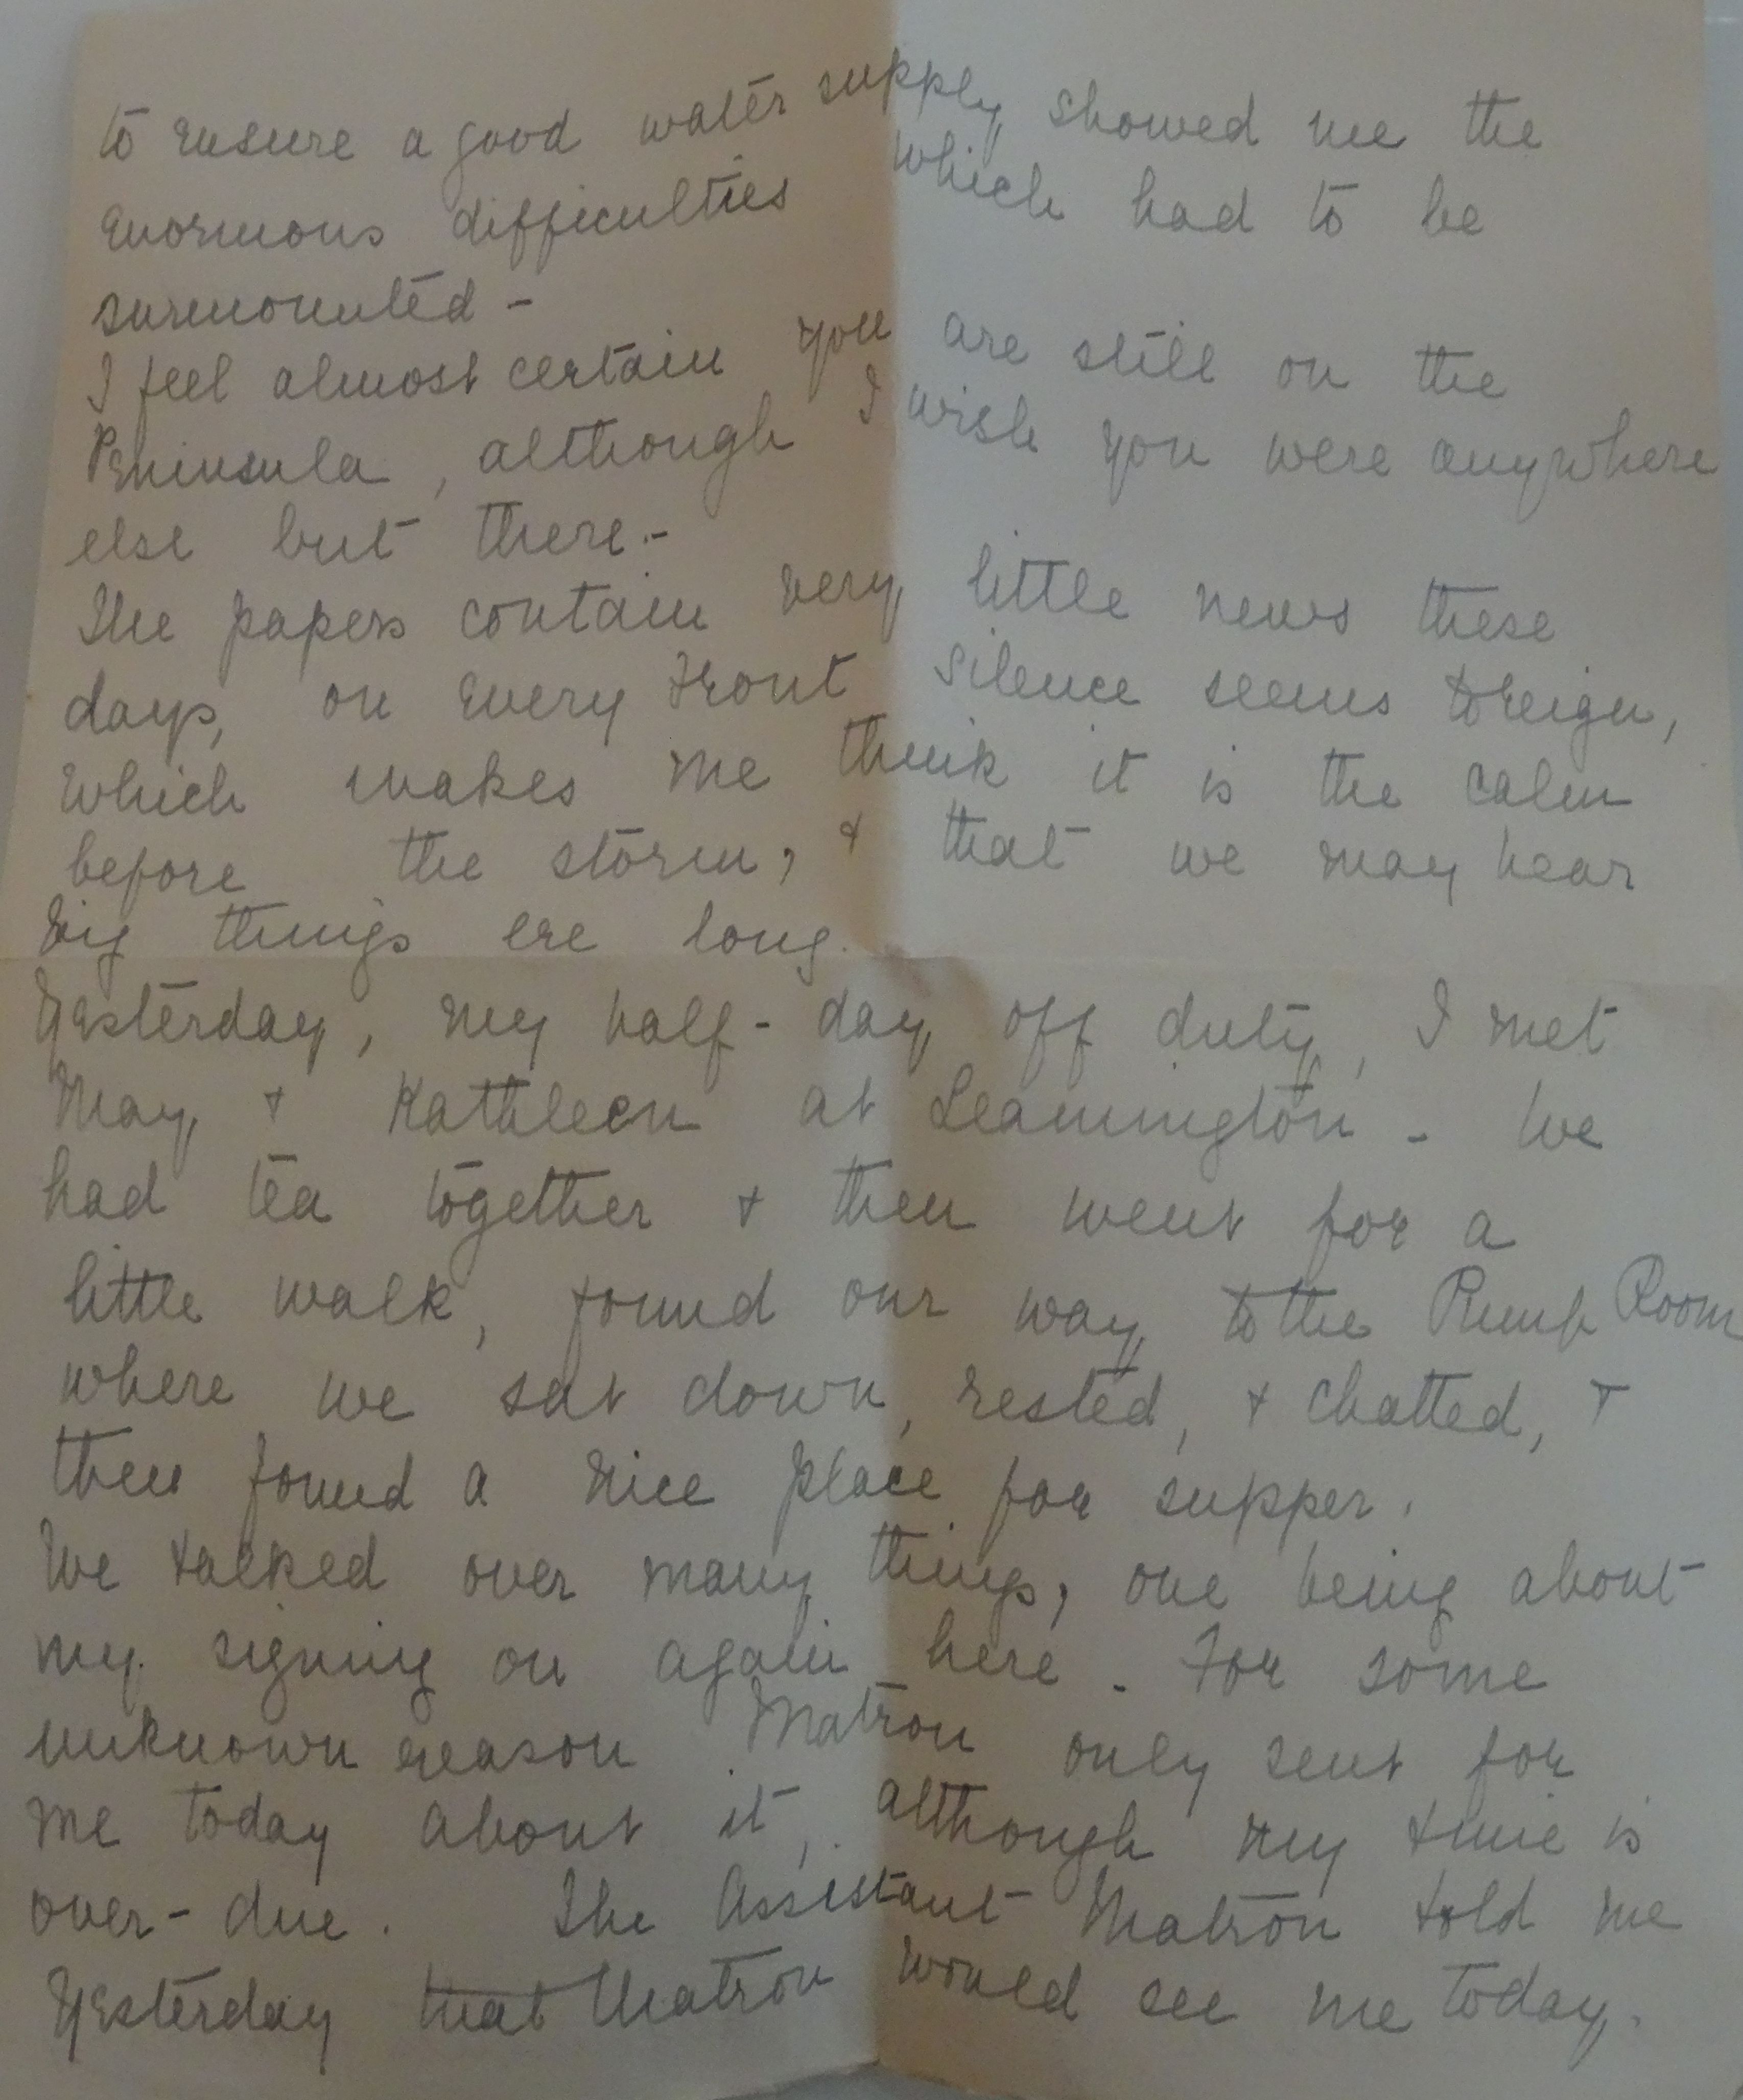 to ensure a good water supply showed me the
enormous difficulties which had to be
surmounted -
I feel almost certain you are still on the
Peninsula, although I wish you were anywhere
else but there.-
The papers contain very little news these
days, on every Front silence seems to reign,
which makes me think it is the calm
before the storm, & that we may hear
big things ere long.
Yesterday, my half-day off duty, I met
May & Kathleen at Leamington - We
had tea together & then went for a
little walk, found our way to the Pump Room
where we sat down, rested, & chatted, &
then found a nice place for supper.
We talked over many things, one being about
my signing on again here - For some
unknown reason Matron only sent for
me today about it, although my time is
over-due. The Assistant Matron told me
Yesterday that Matron would see me today.